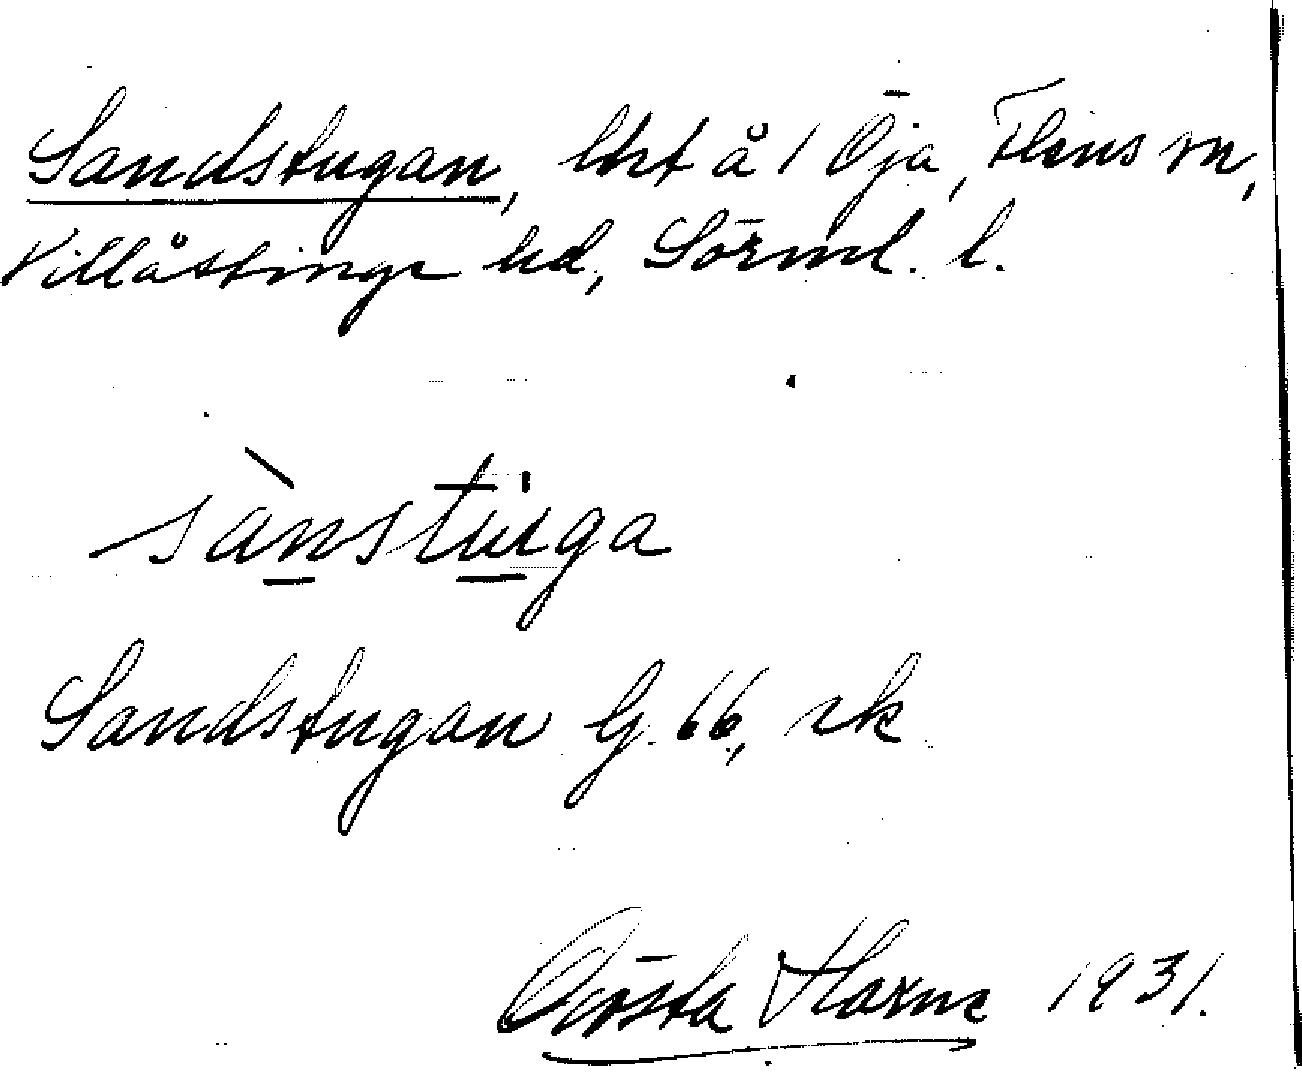 Sandstugan, lht å 1 Öja, Flens sn,
Villåttinge hd, Sörml. l.
sànstuga
Sandstugan G. 66, sk
Gösta Harne 1931.